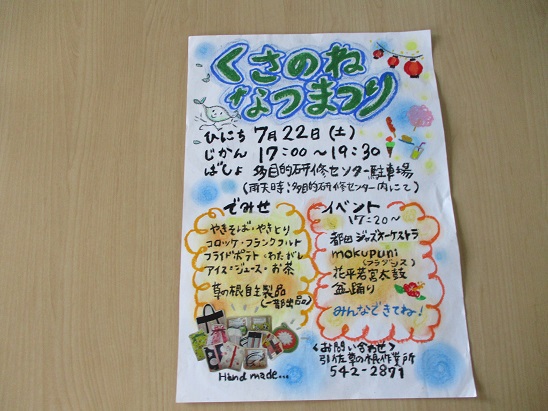 くさのね
なつまつり
ひにち 7月22日(土)
じかん 17:00～19:30
ばしょ 多目的研修センター駐車場
(雨天時:多目的研修センター内にて)
でみせ
やきそば・やきとり
コロッケ・フランクフルト
フライドポテト・わたがし
アイス・ジュース・お茶
草の根自主製品
(一部出品)
Hand made...
イベント
17:20～
都田ジャズオーケストラ
mokupuni
(フラダンス)
花平若宮太鼓
盆踊り
みんなできてね!
<お問い合わせ>
引佐草の根作業所
542-2871